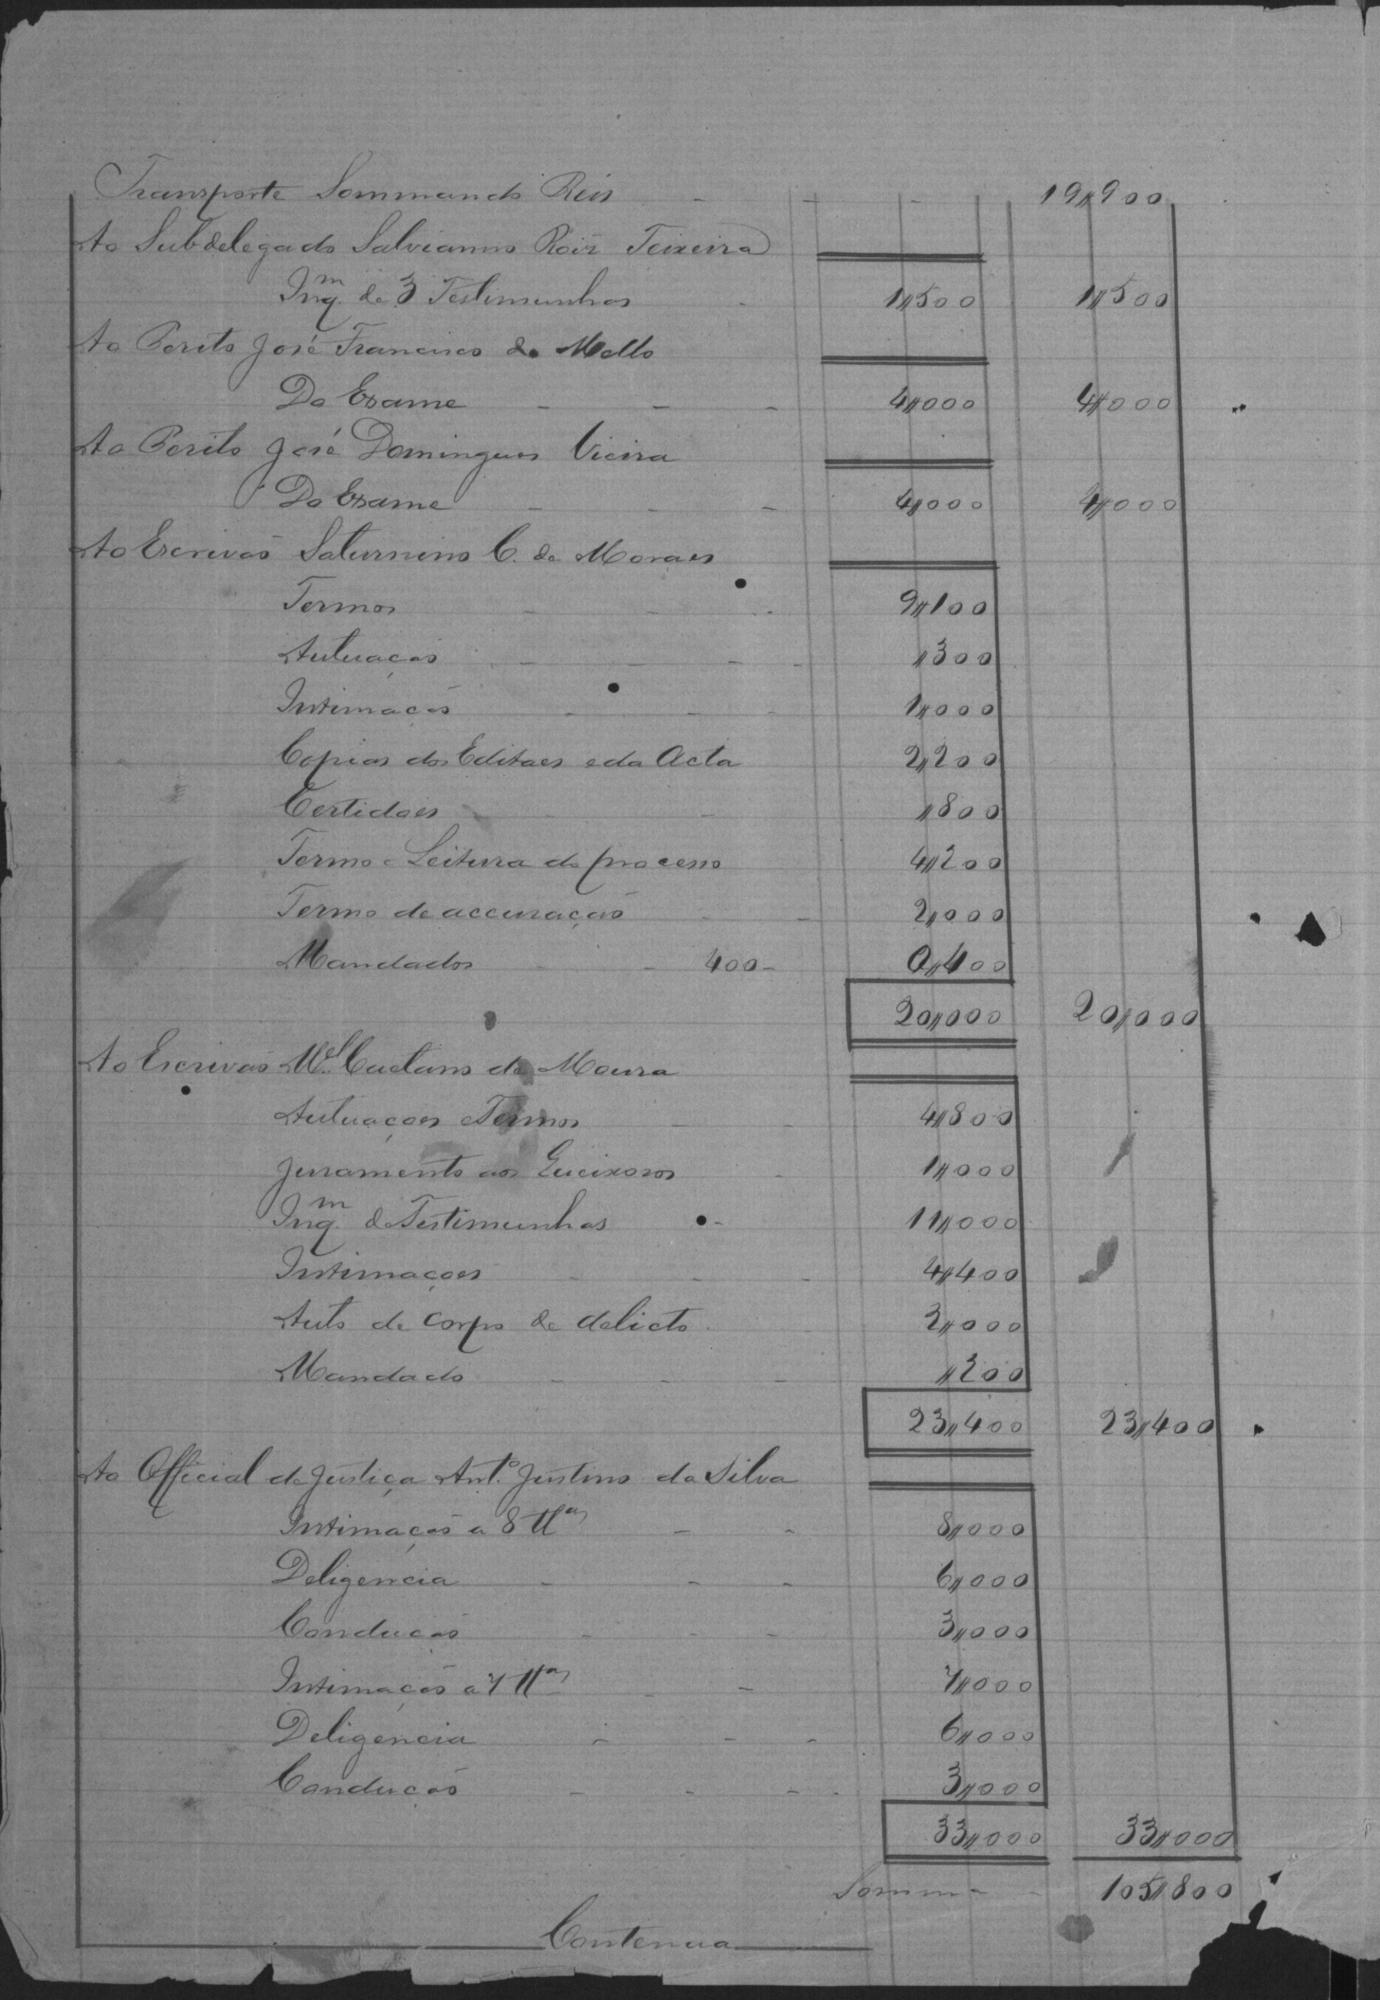 Transporte Sommando Reis - - - 19,,900
Ao Subdelegado Salvianno Roiz Teixeira
Inq.m de 3 Testimunhas - 1,,500 1,,500
Ao Perito José Francisco de Mello
Do Exame - - - 4,,000 4,,000
Ao Perito José Domingues Vieira
Do Exame - - - 4,,000 4,,000
Ao Escrivão Saturnino C. de Moraes
Termos - - - 9,,100
Autuação - - - - 1300
Intimação - - - 1,,000
Copias dos Editaes e da Acta 2,,200
Certidões - - ,,800
Termo e Leitura do processo 4,,200
Termo de accusação - - 2,,000
Mandados - - 400 - 0,,400
20,,000 20,,000
Ao Escrivão M.el Caetano de Moura
Autuações e Termos - - 4,,800
Juramento aos - 1,,000
Inq.m de Testimunhas - 11,,000
Intimações - - - 4,,400
Auto de corpo de delicto 2,,000
Mandado - - - ,,200
23,,400 23,,400
Ao Official de Justiça Ant.o Justino da Silva
Intimação a 8 tt.as - - 8,,000
Deligencia - - - 6,,000
Condução - - - 3,,000
Intimação a 7 tt.as - - 7,,000
Deligencia - - - 6,,000
Condução - - - - 3,,000
33,,000 33,,000
Somma - 105,,800
Contenua